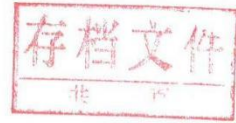 存档文件
共